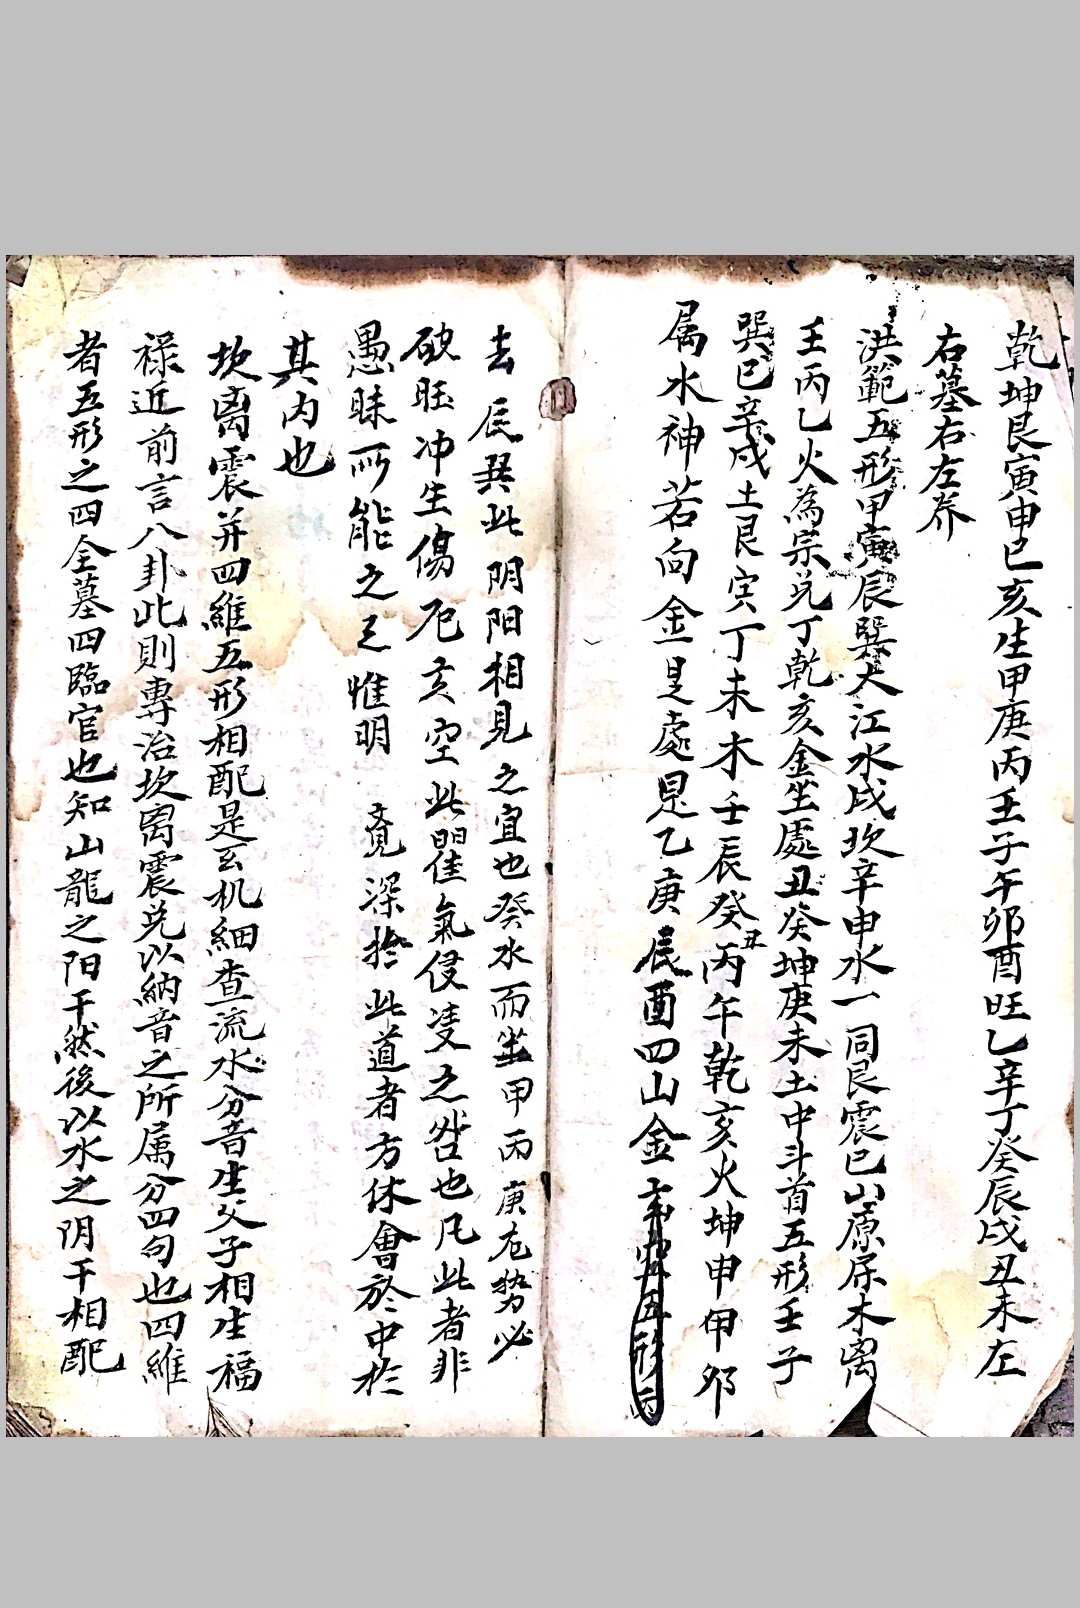 乾坤艮寅申巳亥生甲庚丙壬子午卯酉旺乙辛丁癸辰戌丑未左
右墓右左养
洪範五形甲寅辰巽大江水戌坎辛申水一同艮震巳山原属木离
壬丙乙火為宗兑丁乾亥金坐處丑癸坤庚未土中斗首五形壬子
巽巳辛戌土艮寅丁未木壬辰癸丑丙午乾亥火坤申甲卯
属水神若向金是處見乙庚辰酉四山金
去辰巽此阴阳相見之宜也癸水而坐甲丙庚左势必
破旺冲生傷厄亥空此氣侵凌之咎也凡此者非
愚昧所能之惟明竟深於此道者方休會於中於
其内也
坎离震并四維五形相配是玄机細查流水分音生父子相生福
禄近前言八卦此則專治坎离震兑以納音之所属分四句也四維
者五形之四全墓四臨官也知山龍之阳干然後以水之阴干相配